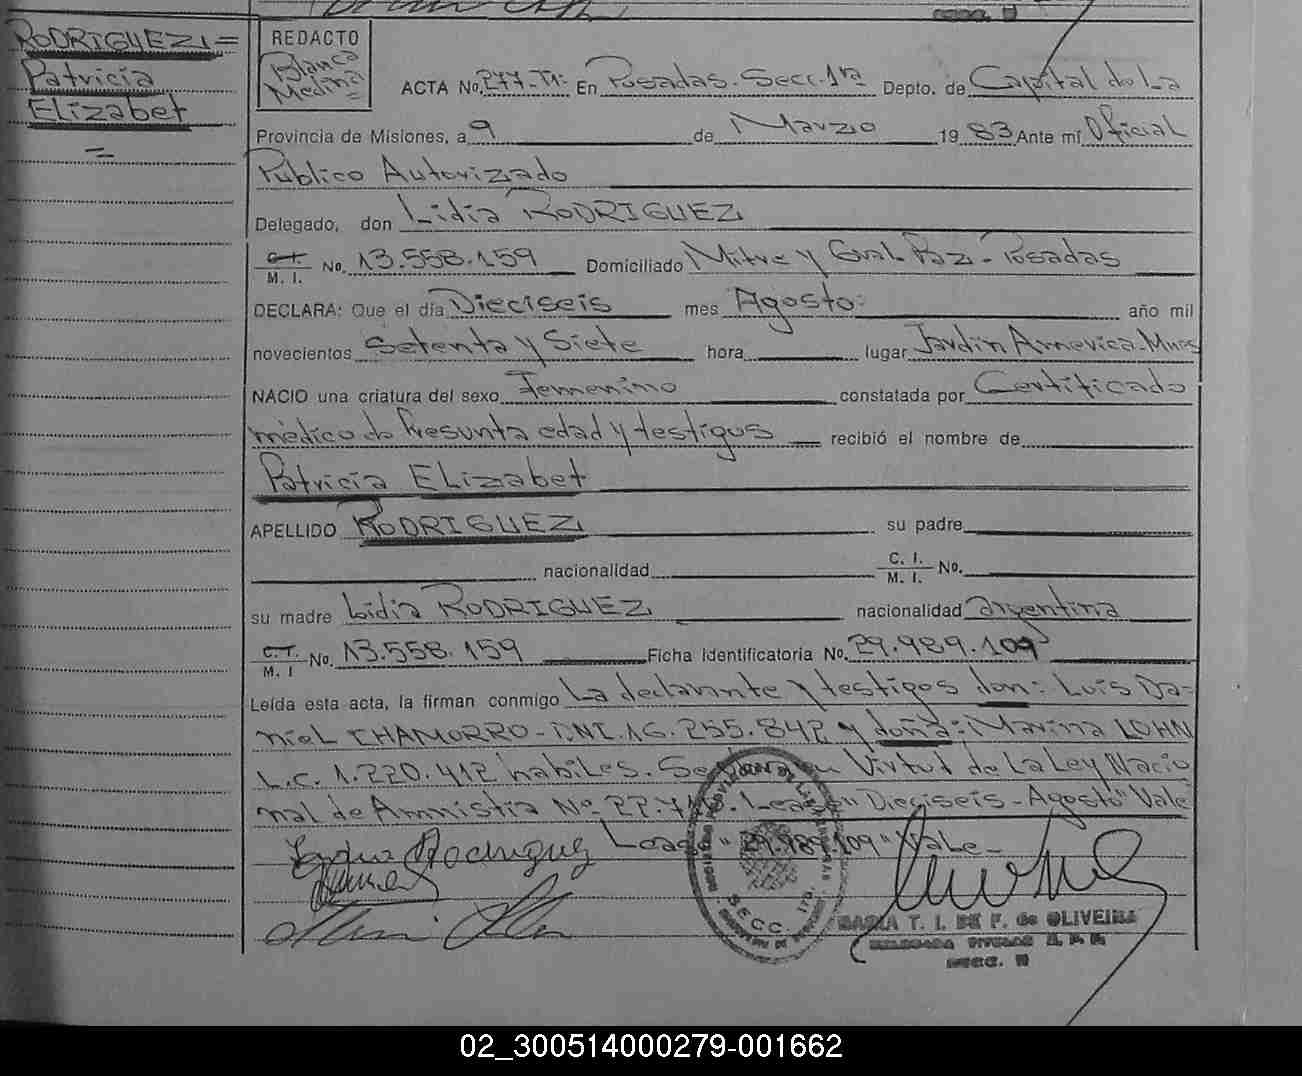 RODRIGUEZ=
Patricia
Elizabet
=
REDACTO
Blanca
Medina
=
ACTA No. 277-T1= En Posadas. Secc. 1ra Depto. de Capital de La
Provincia de Misiones, a 9 de Marzo 1983 Ante mí Oficial
Público Autorizado
Delegado, don Lidia RODRIGUEZ
C. I.
M. I. No. 13.558.159 Domiciliado Mitre y Gral. Paz - Posadas
DECLARA: Que el día Dieciseis mes Agosto= año mil
novecientos Setenta y Siete hora lugar Jardin America. Mnes
NACIO una criatura del sexo Femenino constatada por Certificado
médico de Presunta edad y testigos recibió el nombre de
Patricia ELizabet
APELLIDO RODRIGUEZ su padre
nacionalidad C. I.
M. I. No.
su madre Lidia RODRIGUEZ nacionalidad argentina
C. I.
M. I No. 13.558.159 Ficha Identificatoria No. 29.989.109
Leída esta acta, la firman conmigo La declarante y testigos don: Luis Da=
niel CHAMORRO - DNI. 16.255.842 y doña: Marina LOHN
L.C. 1.220.412 habiles. Se en Virtud de La Ley Nacio
nal de Amnistia Nº 22. Lease " Dieciseis - Agosto" Vale
Lease " 29.989.109 " Vale-
Rodriguez
SECC. 1ra.
MARIA T. I. DE F. de OLIVEIRA
DELEGADA TITULAR R. P. P.
SECC. II
02_300514000279-001662